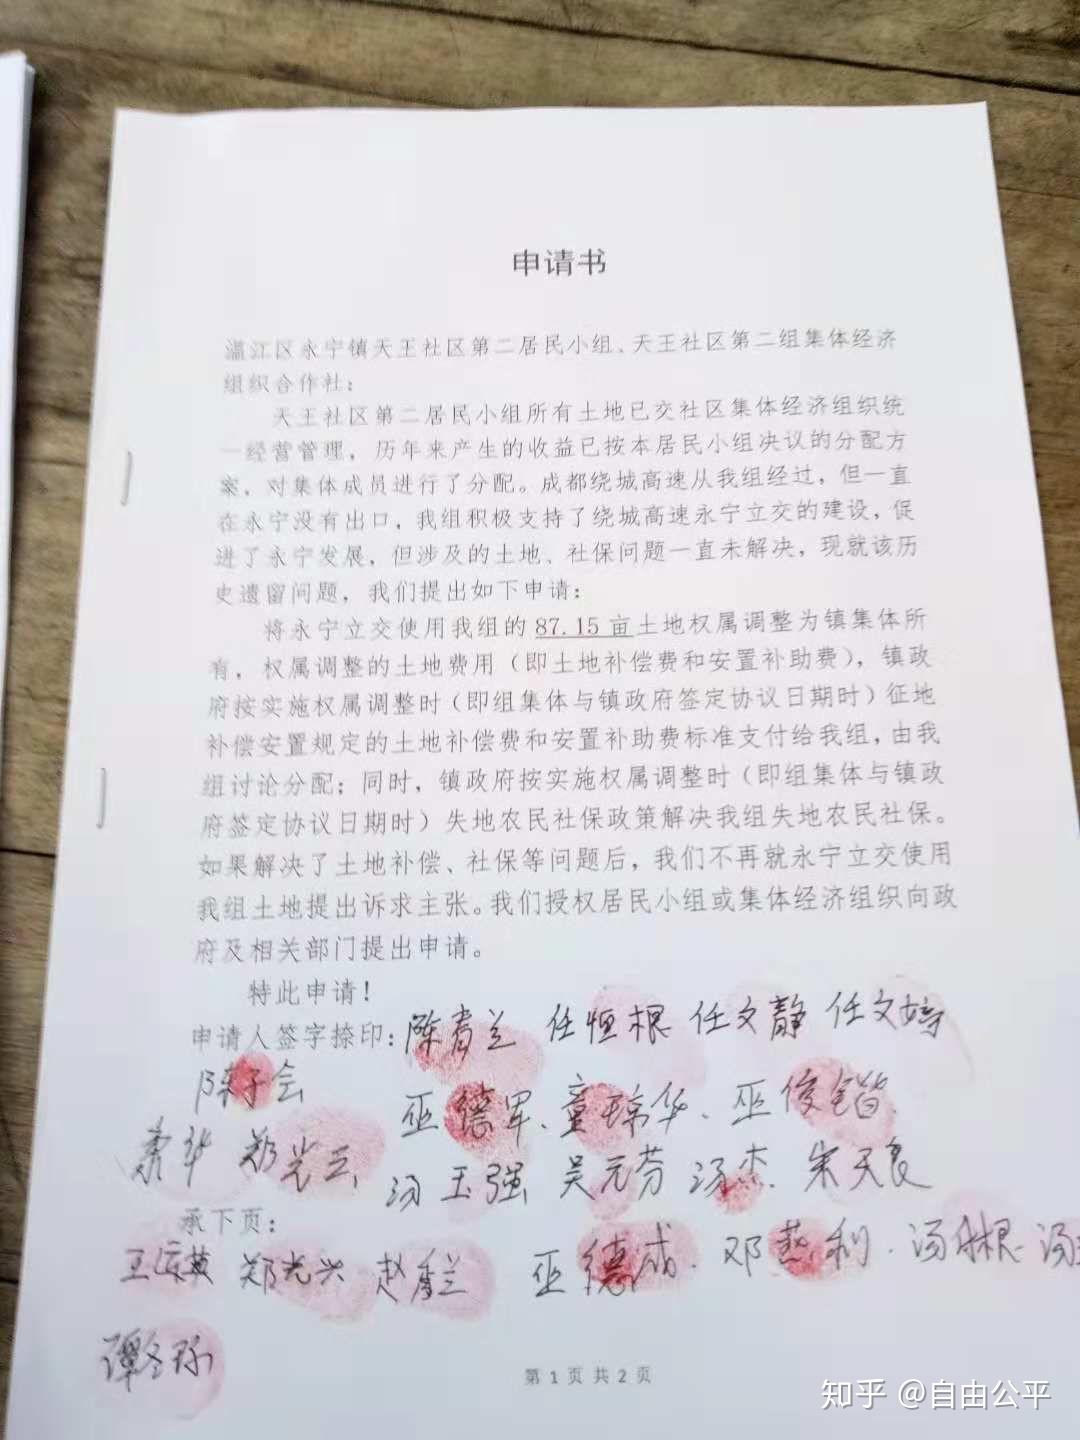 申请书
温江区永宁镇天王社区第二居民小组、天王社区第二组集体经济
组织合作社：
天王社区第二居民小组所有土地已交社区集体经济组织统
一经营管理，历年来产生的收益已按本居民小组决议的分配方
案，对集体成员进行了分配。成都绕城高速从我组经过，但一直
在永宁没有出口，我组积极支持了绕城高速永宁立交的建设，促
进了永宁发展，但涉及的土地、社保问题一直未解决，现就该历
史遗留问题，我们提出如下申请：
将永宁立交使用我组的87.15亩土地权属调整为镇集体所
有，权属调整的土地费用（即土地补偿费和安置补助费），镇政
府按实施权属调整时（即组集体与镇政府签定协议日期时）征地
补偿安置规定的土地补偿费和安置补助费标准支付给我组，由我
组讨论分配；同时，镇政府按实施权属调整时（即组集体与镇政
府签定协议日期时）失地农民社保政策解决我组失地农民社保。
如果解决了土地补偿、社保等问题后，我们不再就永宁立交使用
我组土地提出诉求主张。我们授权居民小组或集体经济组织向政
府及相关部门提出申请。
特此申请！
申请人签字捺印：陈青兰 任恒根 任文静 任文婷
陈子会
巫德军、童琼华、巫俊锴
郑光云
汤玉强 吴元芬 汤杰、宋天良
承下页：
郑光兴 赵香兰 巫德诚、邓燕利、
第 1 页 共 2 页
知乎 @自由公平